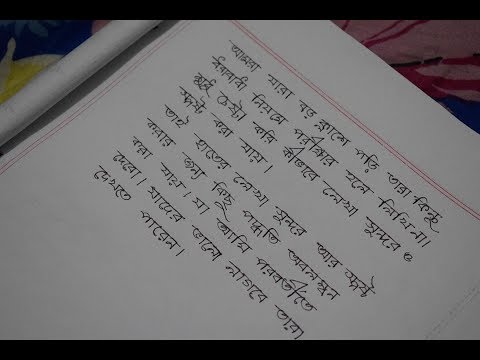 আমরা যারা বড় ক্লাসে পড়ি তারা কিন্তু
ধরাবাধা নিয়মে পরীক্ষার হলে লিখিনা।
শুধু চেষ্টা করি কীভাবে লেখা সুন্দর ও
স্পষ্ট করা যায়।
তাই হাতের লেখা সুন্দর আর স্পষ্ট
করার জন্য কিছু পদ্ধতি অবলম্বন
করা যায়। যা আমি পরবর্তীতে
দেবো। যাদের ভালো লাগবে তারা
দেখতে পারেন।